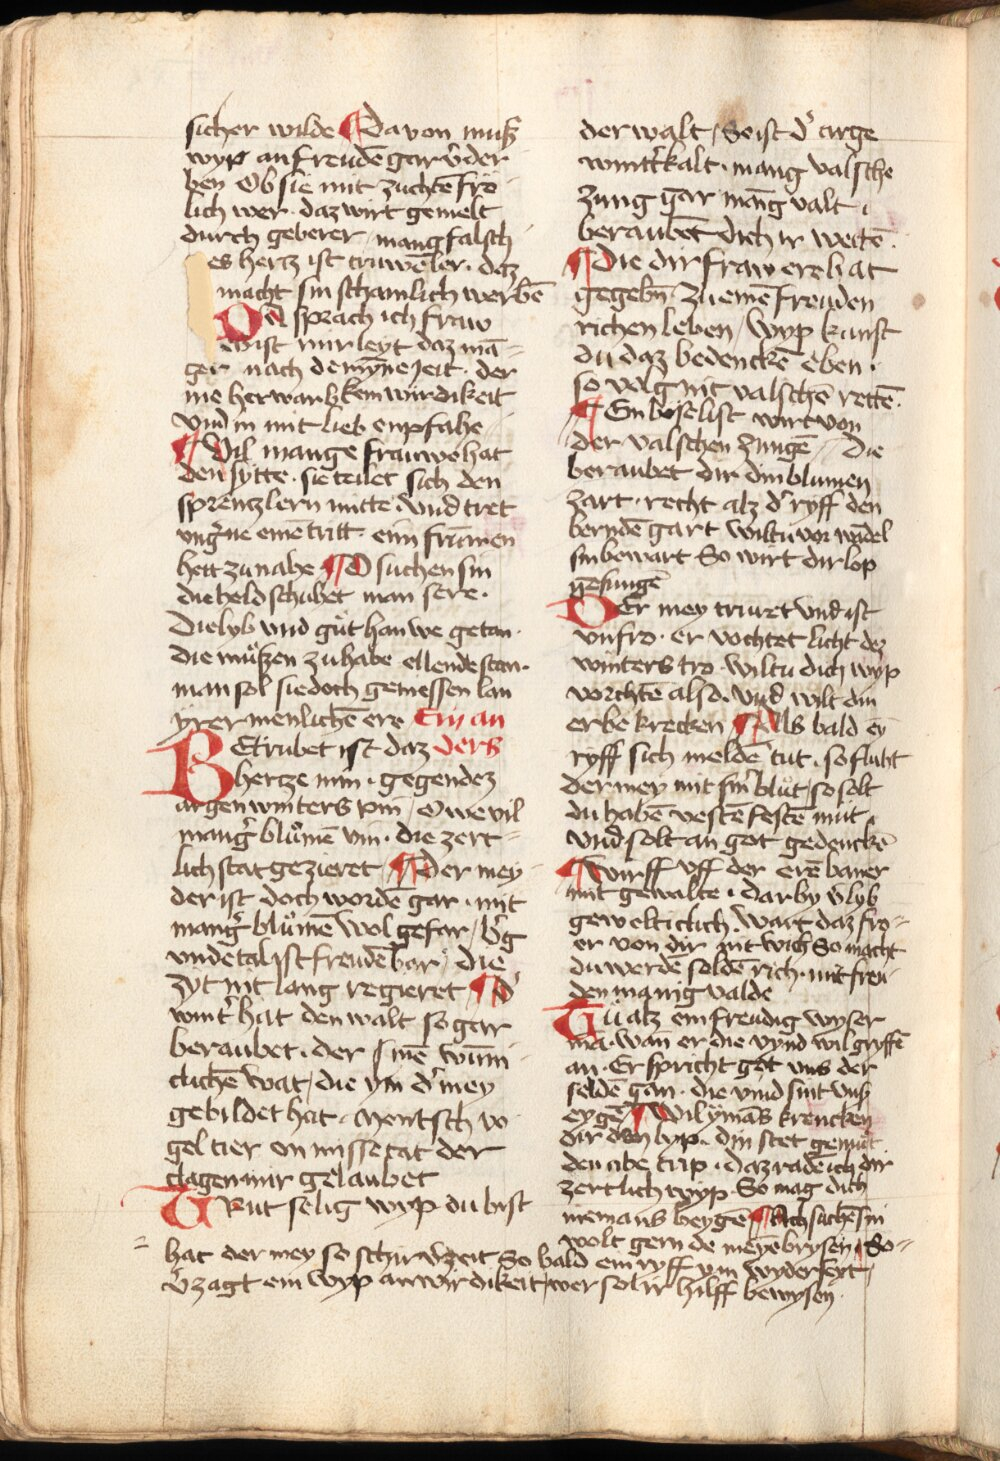 sicher wilde ¶ Da von muß
wyp an freudē gar v̉der
ben Ob sie mit zuchtē frö
lich wer · daz wirt gemelt
durch geberer / mang falsch
es hertz ist truwē ler · daz
macht sin schamlich werbē
Da sprach ich fraw
ist mir leyt daz mā
ger nach de myne zeit · der
nie her warb kein wirdikeit
Vnd in mit lieb enpfahe
¶ Vil mange frauwe hat
den sytte · sie teilet sich den
sprentzlern mitte · Vnd tret
vnḡ'ne emē tritt · eim frūmen
heit zu nahe ¶ D suchen sin
die held schubet man sere ·
Die lyb vnd gůt han we getan ·
Die můßen zu habe ellende stan ·
man sol sie doch gemessen lan
yrer menlichē ere Ein an
BEtrubet ist daz ders
hertze min · gegen dez
argen winters pin / Owe vil
mang̉ blůmē vin · die zert
lich stat gezieret ¶ Der mey
der ist doch wordē gar · mit
mang̉ blůmē wol gefar / b̉g
vnde tal ist freudē bar / die
zyt nit lang regieret ¶ D'
wint̉ hat den walt so gar
beraubet · der sinē wūni
clichē wat / die ym d' mey
gebildet hat · Mentsch vo
gel tier on missetat der
clagen mir gelaubet
TRut selig wyp du bist
der walt / So ist d' arge
wint'kalt · mang valsche
zung gar māg valt ·
beraubēt dich ir weitē ·
¶ Die dir fraw ere hat
gegebn̄ · zu emē freuden
richen leben / Wyp kunst
du daz bedenckē eben ·
so volg nit valschē rettē ·
¶ Ein böse list wirt von
der valschen zungē / Die
beraubet dir din blumen
zart · recht alz d' ryff den
berndē gart Wiltu vor wādel
sin bewart So wirt dir lop
gesungē
DEr mey truret Vnd ist
vnfro · er vochtet licht dez
winters tro · wiltu dich wyp
vorchtē also · Vnd wilt din
erbe krecken ¶ Als bald ey
ryff sich meldē tut · so fluht
der mey mit sin̄ blůt / so solt
du habē vestē festē můt
Vnd solt an got gedenckē
¶ Wirff vff der erē baner
mit gewalte · dar by v̉lyb
geweltictlich · Wart daz fro
er von dir nit wich So macht
du werdē seldē rich · mit freu
den manig valde
Tů alz ein freudig wyser
mā · Wan̄ er die vynd wil gryffē
an · Er spricht got vns der
seldē gan · die vind sint vns
eygē ¶ Wil ymās krencken
dir den lyp · din stet gemut
den abe trip · daz radē ich dir
zertlich wyp · So mag dich
niemans beygē ¶ Ach suchē sin
wolt gern de meyē brysen ¶ So
hat der mey so schir v̉zeit So bald ein ryff ym wyderseyt /
v̉zagt ein wyp an wirdikeit / wer sol ir hilff bewysen ·